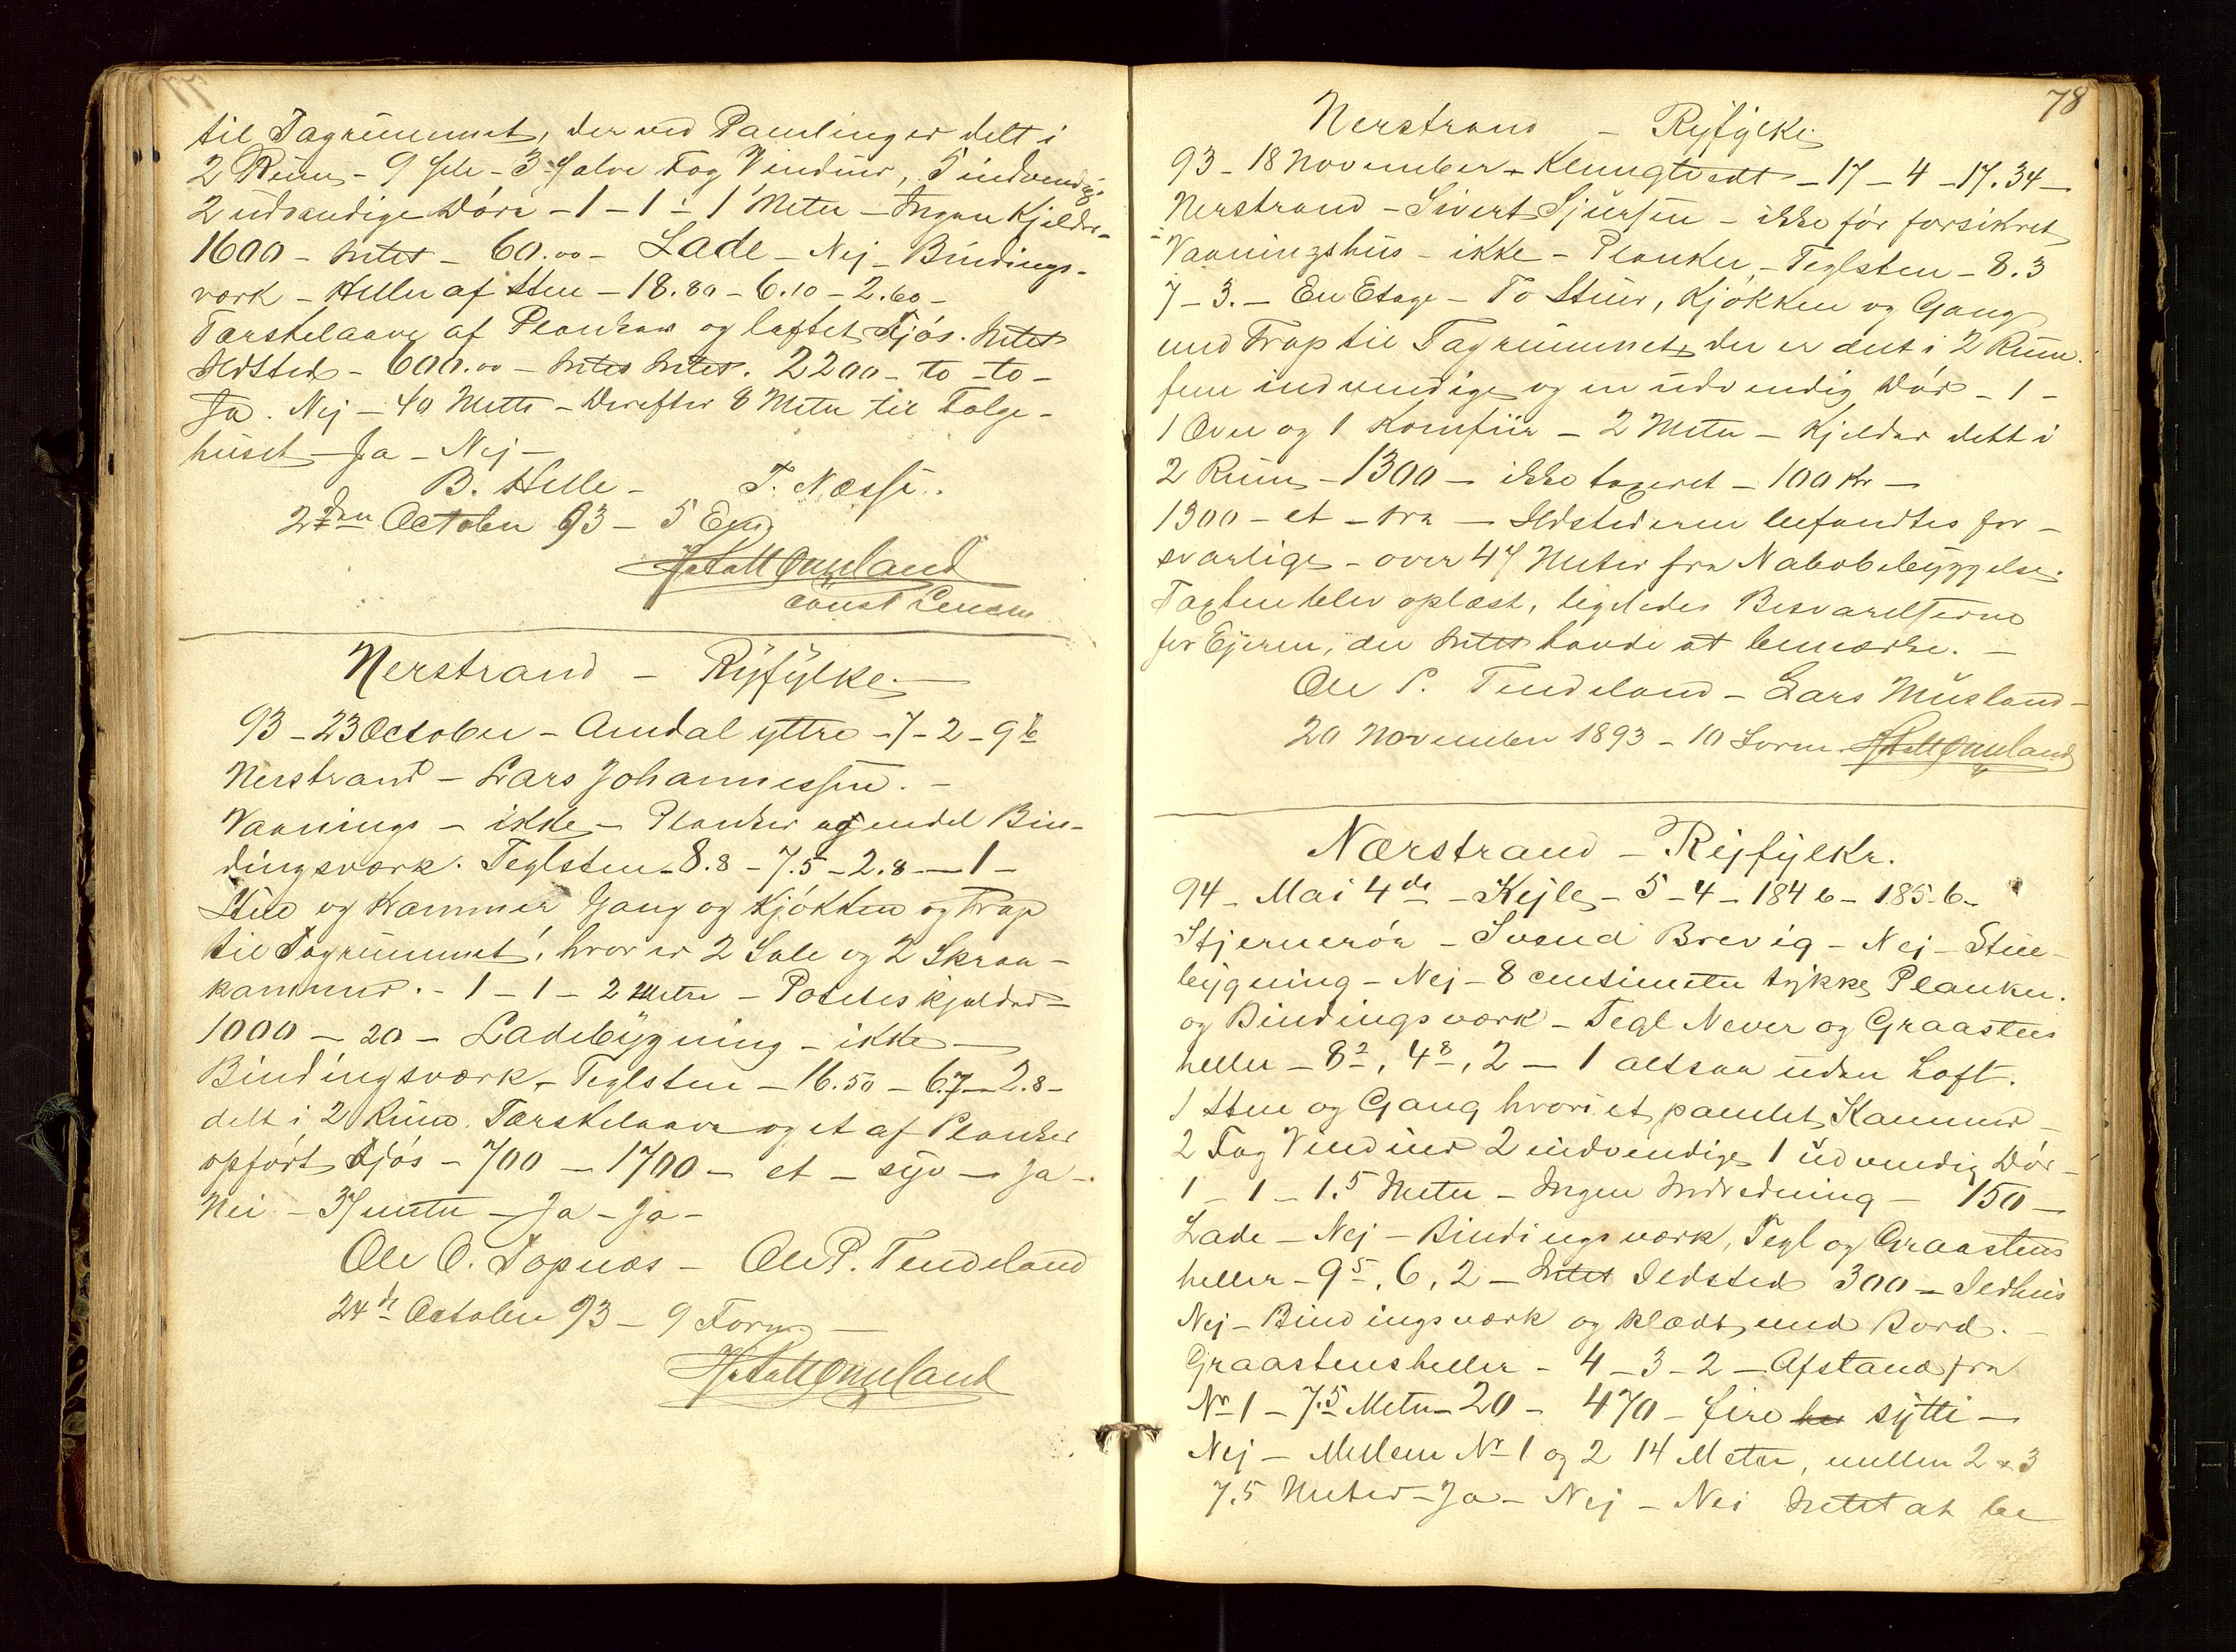 til Tagrummet, der ved Pamling er delt i
2 Rum - 9 hele - 3 halve Fag Vinduer, 5 indvendige
2 udvendige Døre - 1 - 1 - 1 Meter - Ingen Kjelder -
1600 - Intet - 60.00 - Lade - Nej - Bindings-
værk - Heller af Sten - 18.80 - 6.10 - 2.60 -
Tærskelaave af Planker og loftet Fjøs. Intet
Ildsted - 600.00 - Intet Intet. 2200 - to - to -
Ja. Nej - 40 Meter - Derefter 8 Meter til Følge-
huset - Ja - Nej -
B. Helle - T. Næsse.
2den October 93 - 5 Em
const Lensm
Nerstrand - Ryfylke -
93 - 23 October - Amdal yttre - 7 - 2 - 9 b
Nerstrand - Lars Johannessen. -
Vaanings - ikke - Planker og endel Bin-
dingsværk. Teglsten - 8.8 - 7.5 - 2.8 - 1 -
Stue og Kammer Gang og Kjøkken og Trap
til Tagrummet, hvor er 2 Sale og 2 Skraa-
kammer. - 1 - 1 - 2 Meter - Potetes kjelder -
1000 - 20 - Ladebygning - ikke -
Bindingsværk - Teglsten - 16.50 - 6.7 - 2.8 -
delt i 2 Rum. Tærskelaave og et af Planker
opført Fjøs - 700 - 1700 - et - syv - ja -
Nei - 37 meter - Ja - Ja -
Ole O. Døpnæs - Ole P. Tendeland
24de October 93 - 9 Form -
78
Nerstrand - Ryfylke
93 - 18 November - Klungtvedt - 17 - 4 - 17.34 -
Nerstrand - Sivert Sjursen - ikke før forsikret
Vaaningshus - ikke - Planker - Teglsten - 8.3
7 - 3. - En Etage - To Stuer, Kjøkken og Gang
med Trap til Tagrummet der er delt i 2 Rum.
fem indvendige og en udvendig Dør - 1 -
1 Ovn og 1 Komfür - 2 Meter - Kjelder delt i
2 Rum - 1300 - ikke taxeret - 100 Kr -
1300 - et - tre - Ildstederne befandtes for-
svarlige - over 47 Meter fra Nabobebyggelse.
Taxten blev oplæst, ligeledes Besvarelserne
for Ejeren, der Intet havde at bemærke. -
Ole P. Tendeland - Lars Musland -
20 November 1893 - 10 Form.
Nærstrand - Rijfylke.
94 - Mai 4de - Kejle - 5 - 4 - 184 b - 185 b -
Stjernerøa - Svend Brevig - Nej - Stue-
bygning - Nej - 8 centimeter tykke Planker.
og Bindingsværk - Tegl Never og Graastens
heller - 8 2, 4 8, 2 - 1 altsaa uden Loft.
1 Stue og Gang hvori et pamlet Kammer -
2 Fag Vinduer 2 indvendige 1 udvendig Dør -
1 - 1 - 1.5 Meter - Ingen Indredning - 150 -
Lade - Nej - Bindingsværk, Tegl og Graastens
heller - 9 5, 6, 2 - Intet Ildsted 300 - Ildhus
Nej - Bindingsværk og klædt med Bord. -
Graastensheller - 4 - 3 - 2 - Afstand fra
No 1 - 7.5 Meter - 20 - 470 - fire hu sytti -
Nej - Mellem No 1 og 2 14 Meter, mellem 2 & 3
7.5 Meter - Ja - Nej - Nei Intet at be